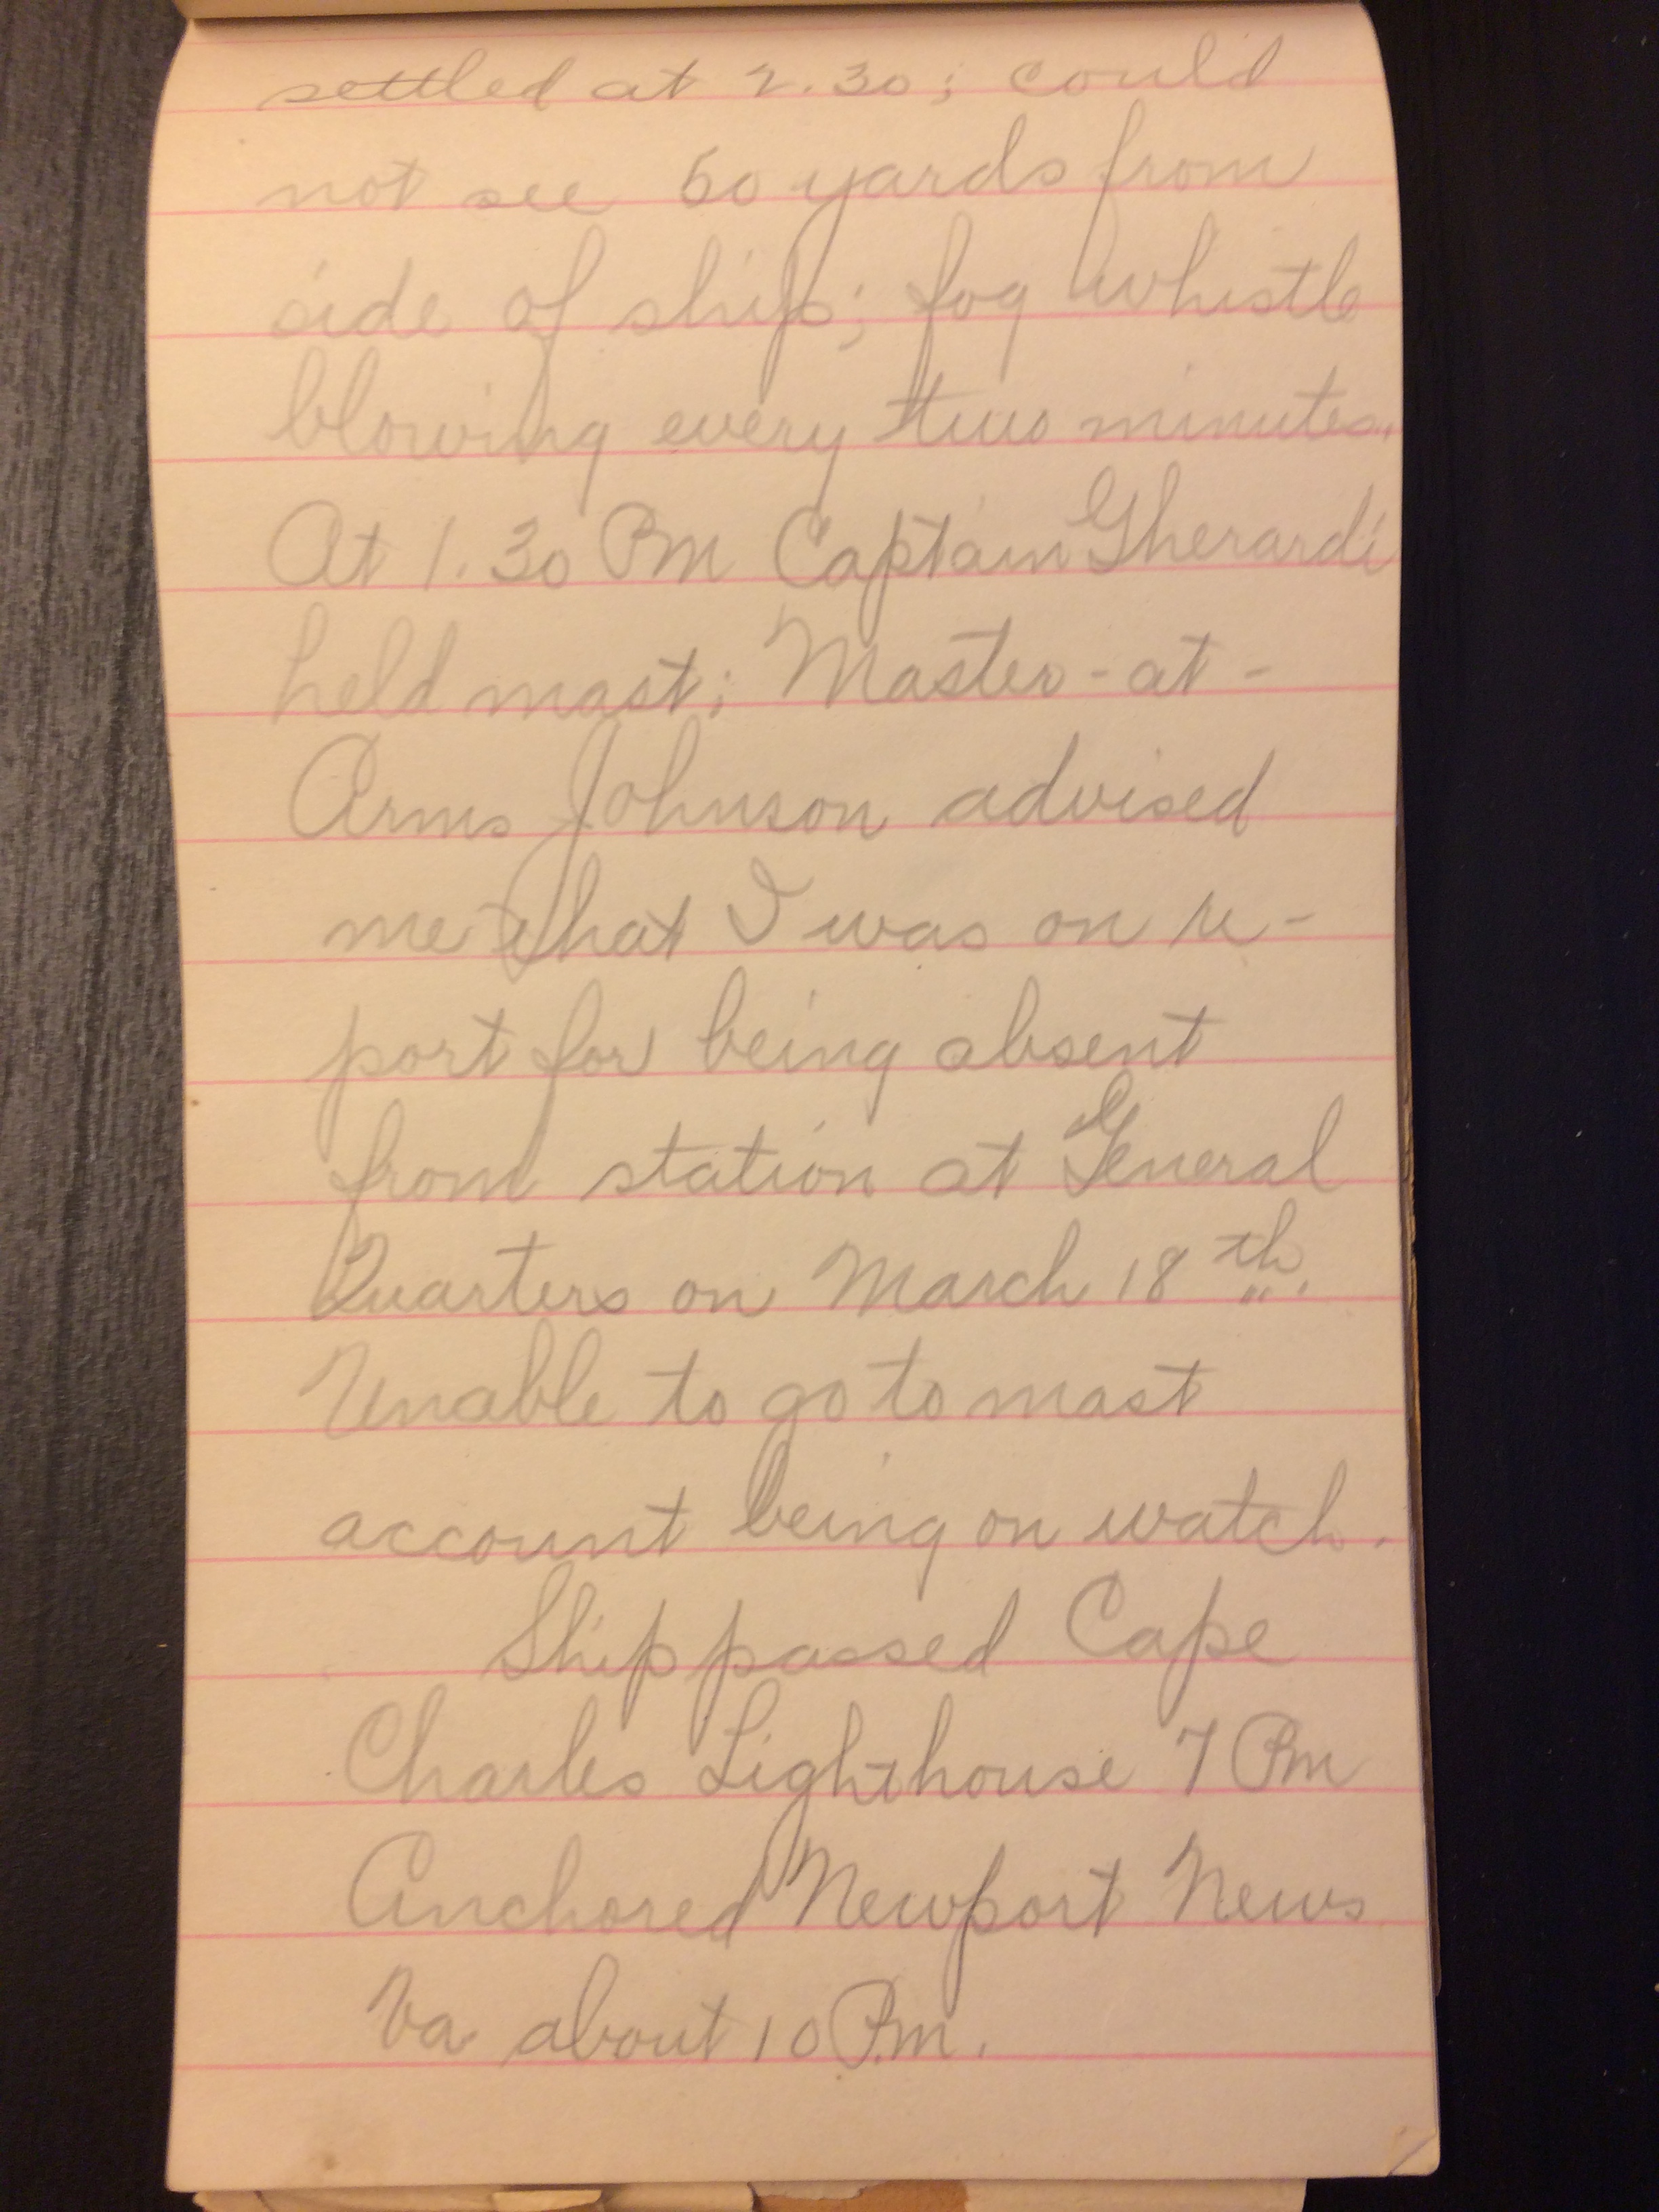 settled at 2.30; could
not see 50 yards from
side of ship; fog whistle
blowing every two minutes.
At 1.30 PM Captain Gherardi
held mast; Master-at-
Arms Johnson advised
me that I was on re-
port for being absent
from station at General
Quarters on March 18th.
Unable to go to mast
account being on watch.
Ship passed Cape
Charles Lighthouse 7 PM
Anchored Newport News
Va about 10 P.M.